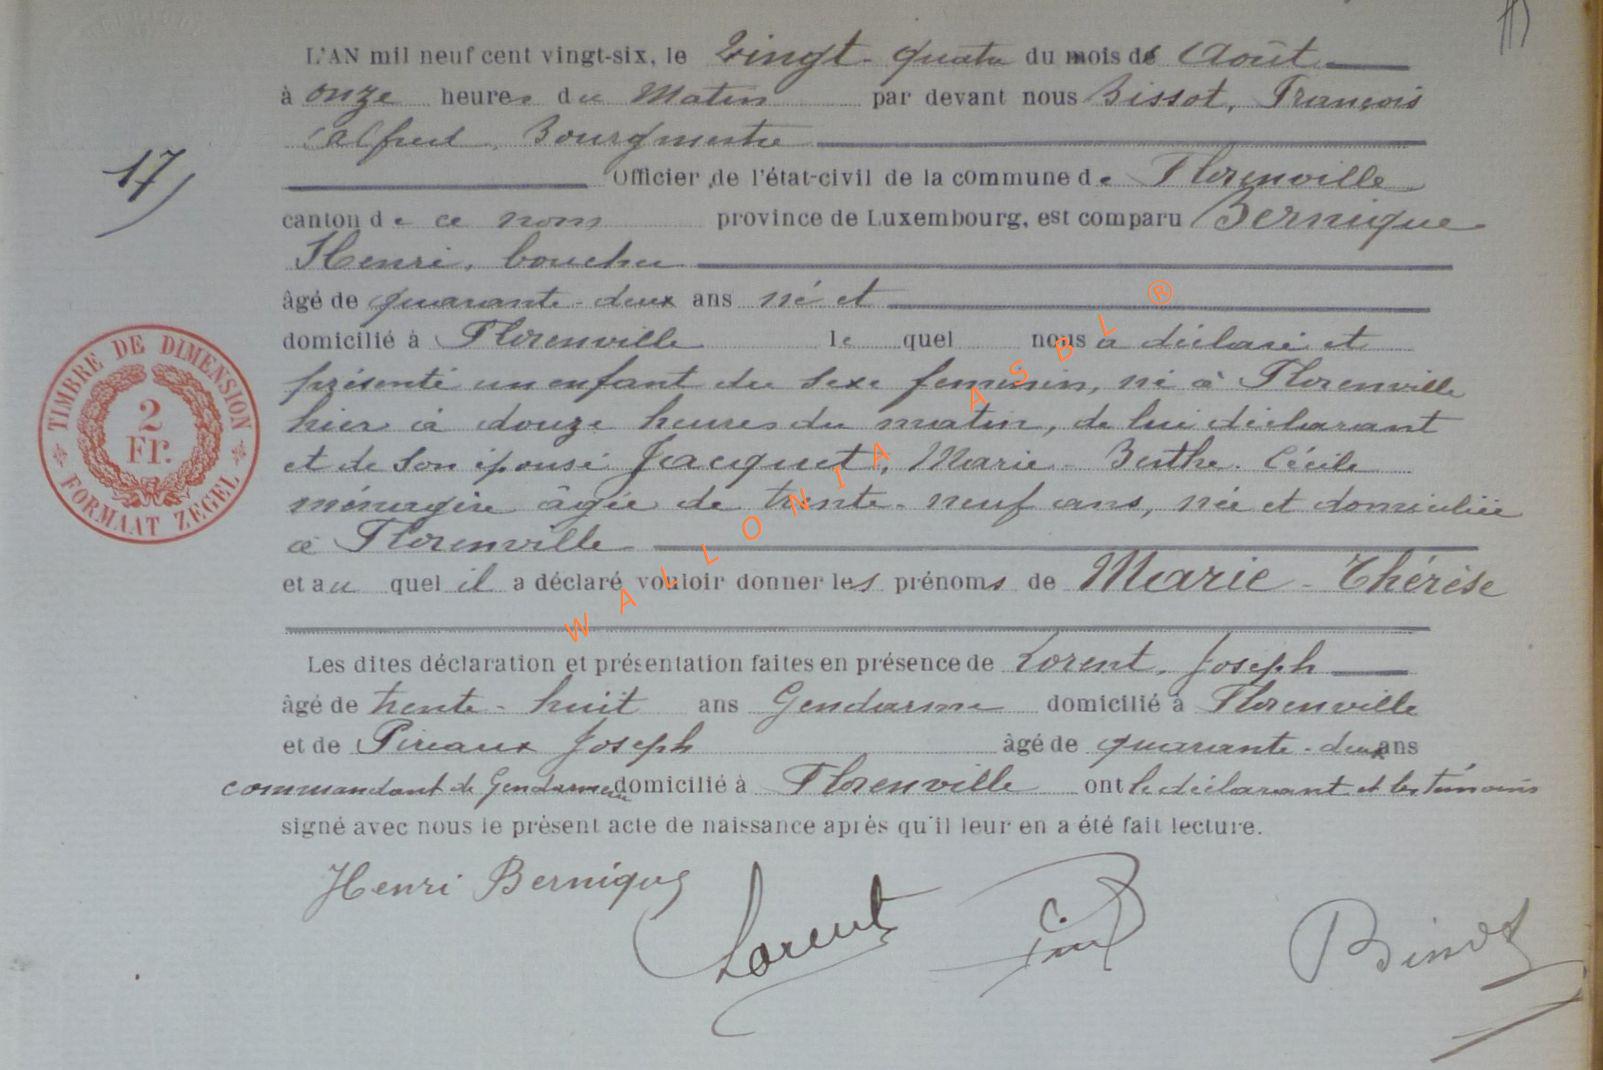 L'AN mil neuf cent vingt-six, le vingt-quatre du mois de Août
à onze heures du Matin par devant nous Bissot, François
Alfred, Bourgmestre
17)
Officier de l'état-civil de la commune de Florenville
canton de ce nom province de Luxembourg, est comparu Bernique
Henri, boucher
âgé de quarante-deux ans né et
domicilié à Florenville le quel nous a déclaré et
présenté un enfant du sexe feminin, né à Florenville
hier à douze heures du matin, de lui déclarant
et de son épouse Jacquet, Marie-Berthe-Cécile
ménagère âgée de trente-neuf ans, née et domiciliée
à Florenville
et au quel il a déclaré vouloir donner les prénoms de Marie-Thérèse
Les dites déclaration et présentation faites en présence de Lorent, Joseph
âgé de trente-huit ans Gendarme domicilié à Florenville
et de Pireaux Joseph âgé de quarante-deux ans
commandant de Gendarmerie domicilié à Florenville ont le déclarant et les témoins
signé avec nous le présent acte de naissance après qu'il leur en a été fait lecture.
Henri Bernique Lorent Bissot
TIMBRE DE DIMENSION
2
Fr.
FORMAAT ZEGEL
WALLONIA ASBL ®